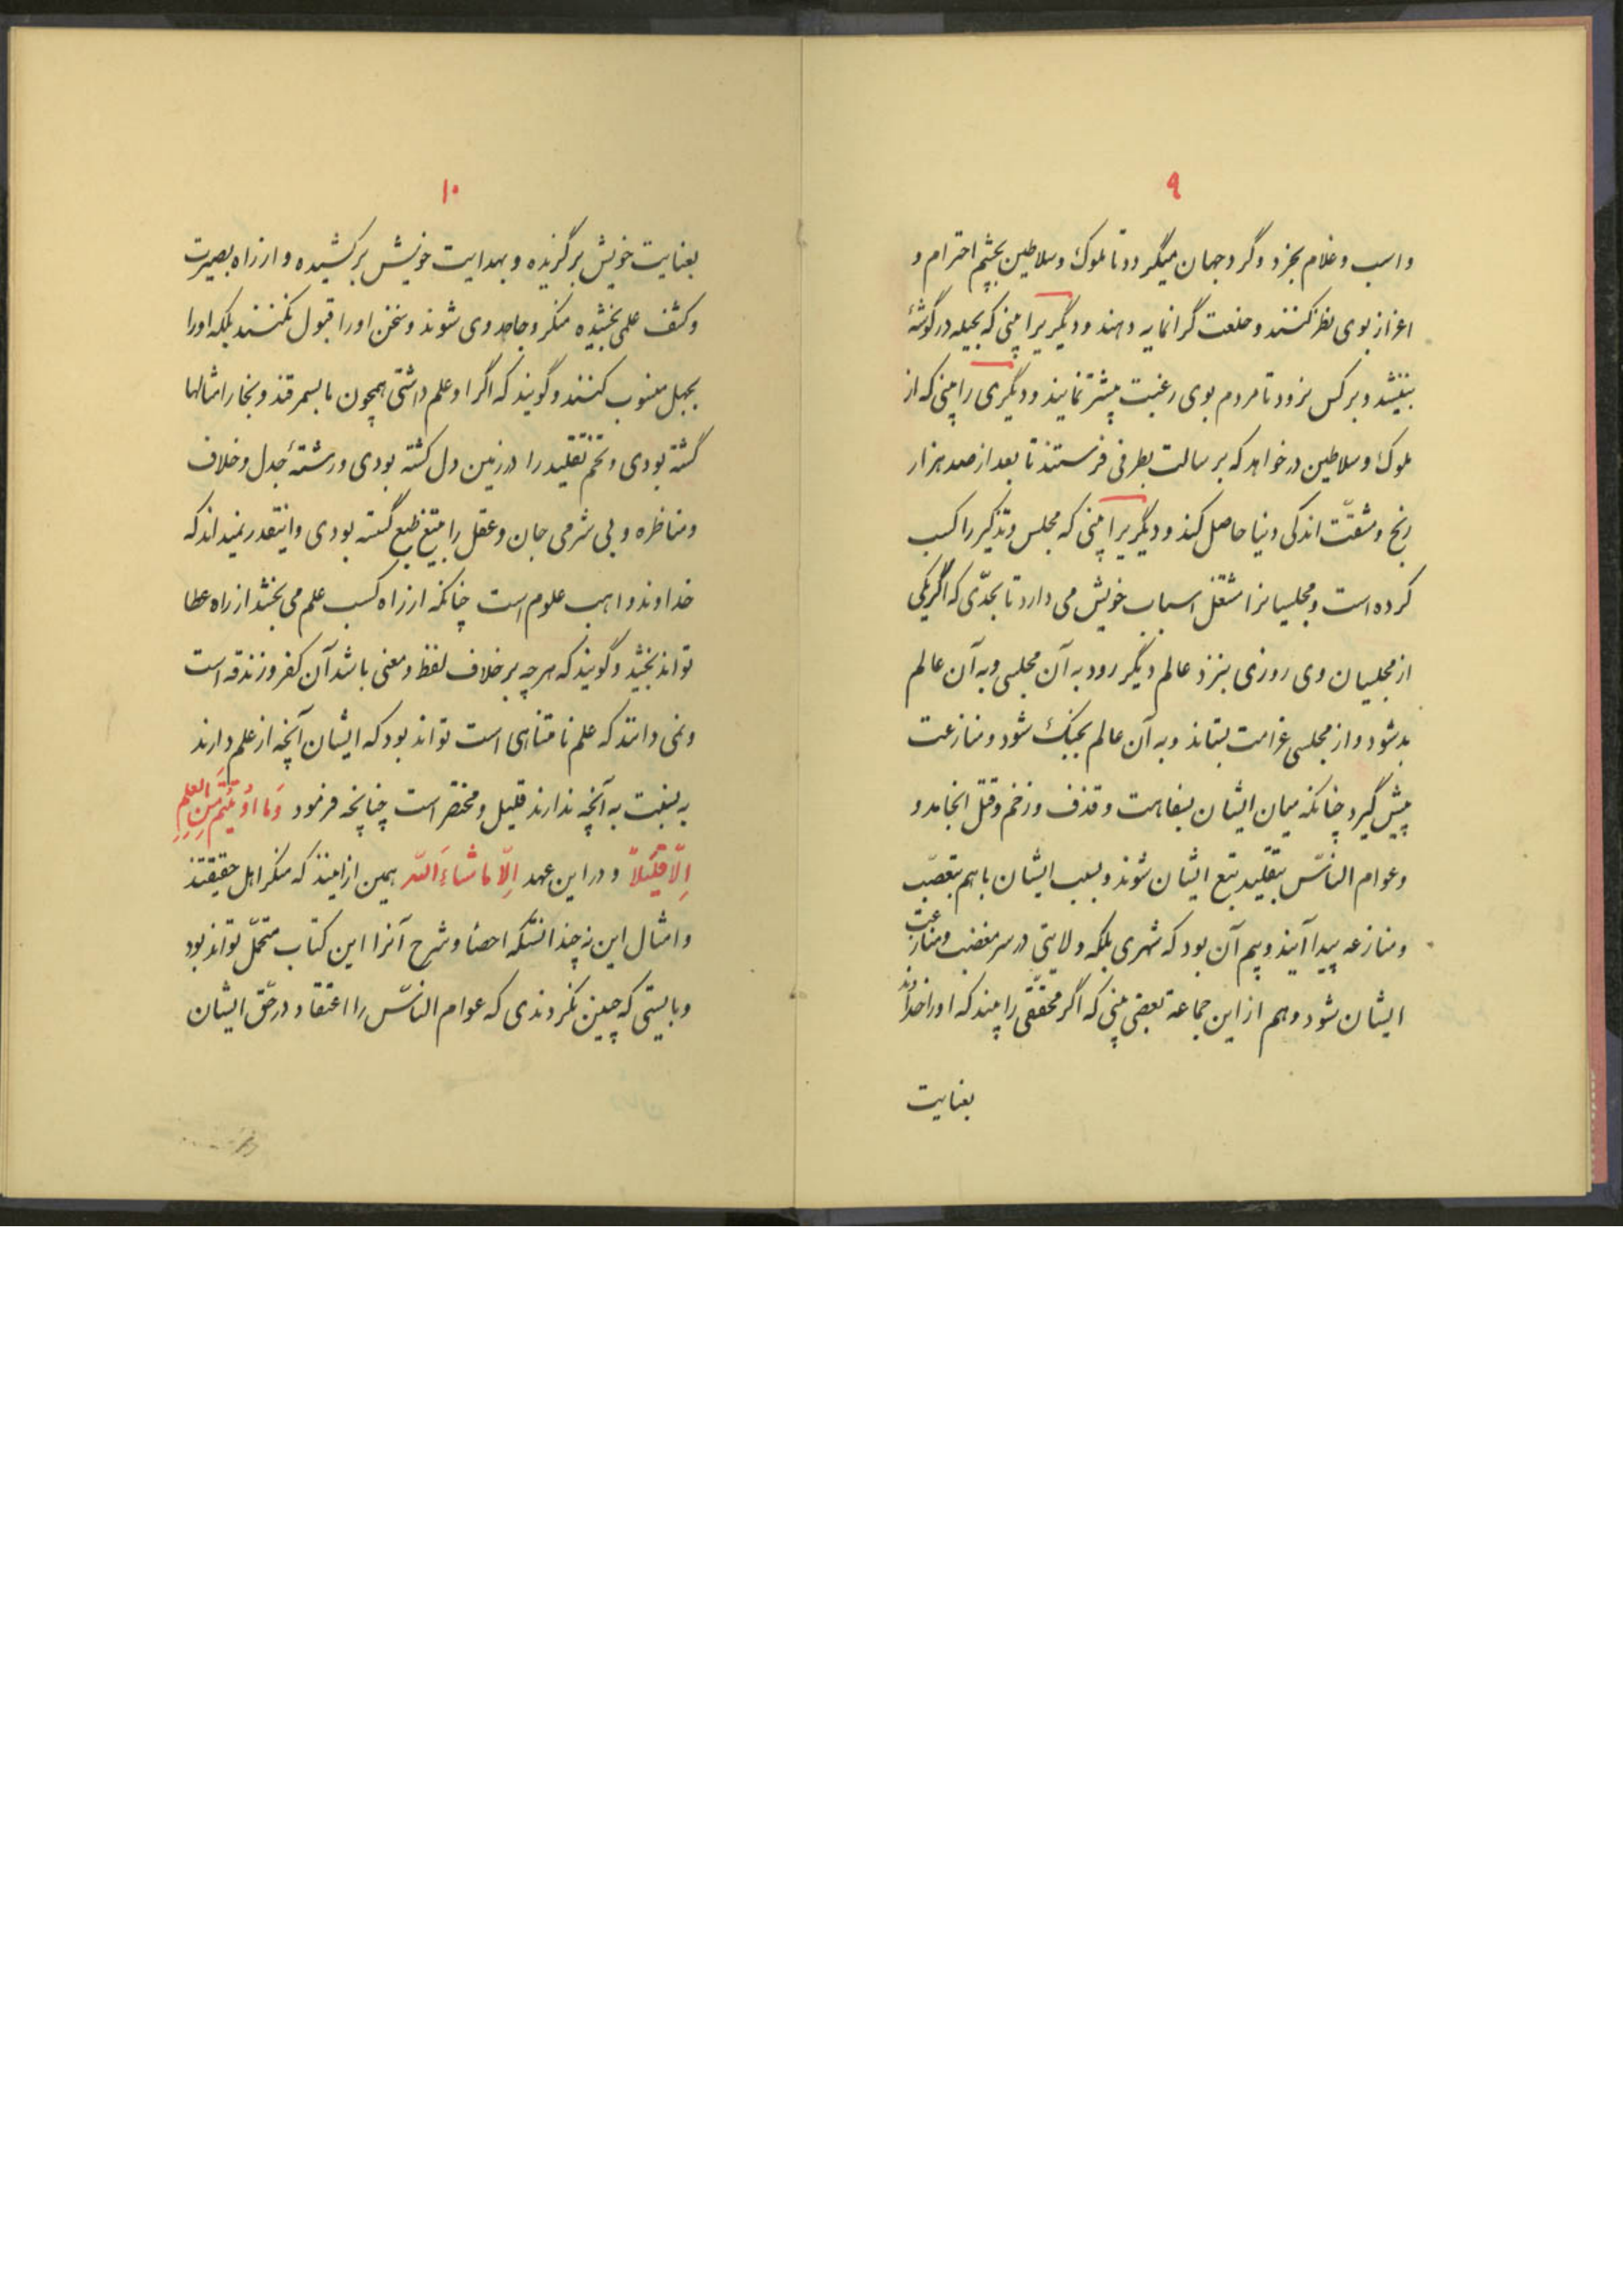 ۹
و اسب و غلام بخرد و گرد جهان میگردد تا ملوک و سلاطین بچشم احترام و
اعزاز بوی نظر کنند و خلعت گرانمایه دهند و دیگریرا بینی که بحیله در گوشهٔ
بنشیند و بر کس نرود تا مردم بوی رغبت بیشتر نمایند و دیگری را بینی که از
ملوک و سلاطین درخواهد که برسالت بطرفی فرستند تا بعد از صد هزار
رنج و مشقّت اندکی دنیا حاصل کند و دیگریرا بینی که مجلس و تذکیر را کسب
کرده است و مجلسیانرا شغل اسباب خویش می دارد تا بحدّی که اگر یکی
از مجلسیان وی روزی بنزد عالم دیگر رود به آن مجلسی و به آن عالم
بد شود و از مجلسی غرامت بستاند و به آن عالم بجنگ شود و منازعت
پیش گیرد چنانکه میان ایشان بسفاهت و قذف و زخم و قتل انجامد و
و عوام النّاس بتقلید تبع ایشان شوند و بسبب ایشان با هم بتعصّب
و منازعه پیدا آیند و بیم آن بود که شهری بلکه ولایتی در سر مغضبت و منازعت
ایشان شود و هم از این جماعة بعضی بینی که اگر محقّقی را بینند که او را خداوند
بعنایت
۱۰
بعنایت خویش برگزیده و بهدایت خویش برکشیده و از راه بصیرت
و کشف علمی بخشیده منکر و جاحد وی شوند و سخن او را قبول نکنند بلکه او را
بجهل منسوب کنند و گویند که اگر او علم داشتی همچون ما بسمرقند و بخارا سالها
گشته بودی و تخم تقلید را در زمین دل کشته بودی و رشتهٔ جدل و خلاف
و مناظره و بی شرمی جان و عقل را بتیغ طبع گسسته بودی و اینقدر نمیداند که
خداوند واهب علوم است چنانکه از راه کسب علم می بخشد از راه عطا
تواند بخشید و گویند که هر چه بر خلاف لفظ و معنی باشد آن کفر و زندقه است
و نمی دانند که علم نامتناهی است تواند بود که ایشان آنچه از علم دارند
به نسبت به آنچه ندارند قلیل و مختصر است چنانچه فرمود وَما اُوتیتُم مِنَ العِلمِ
اِلّا قَلیلاً و در این عهد اِلّا ما شاءَ اللّه همین از اینند که منکر اهل حقیقتند
و امثال این نه چندانستکه احصا و شرح آنرا این کتاب متحمّل تواند بود
و بایستی که چنین نکردندی که عوام النّاس را اعتقاد در حقّ ایشان